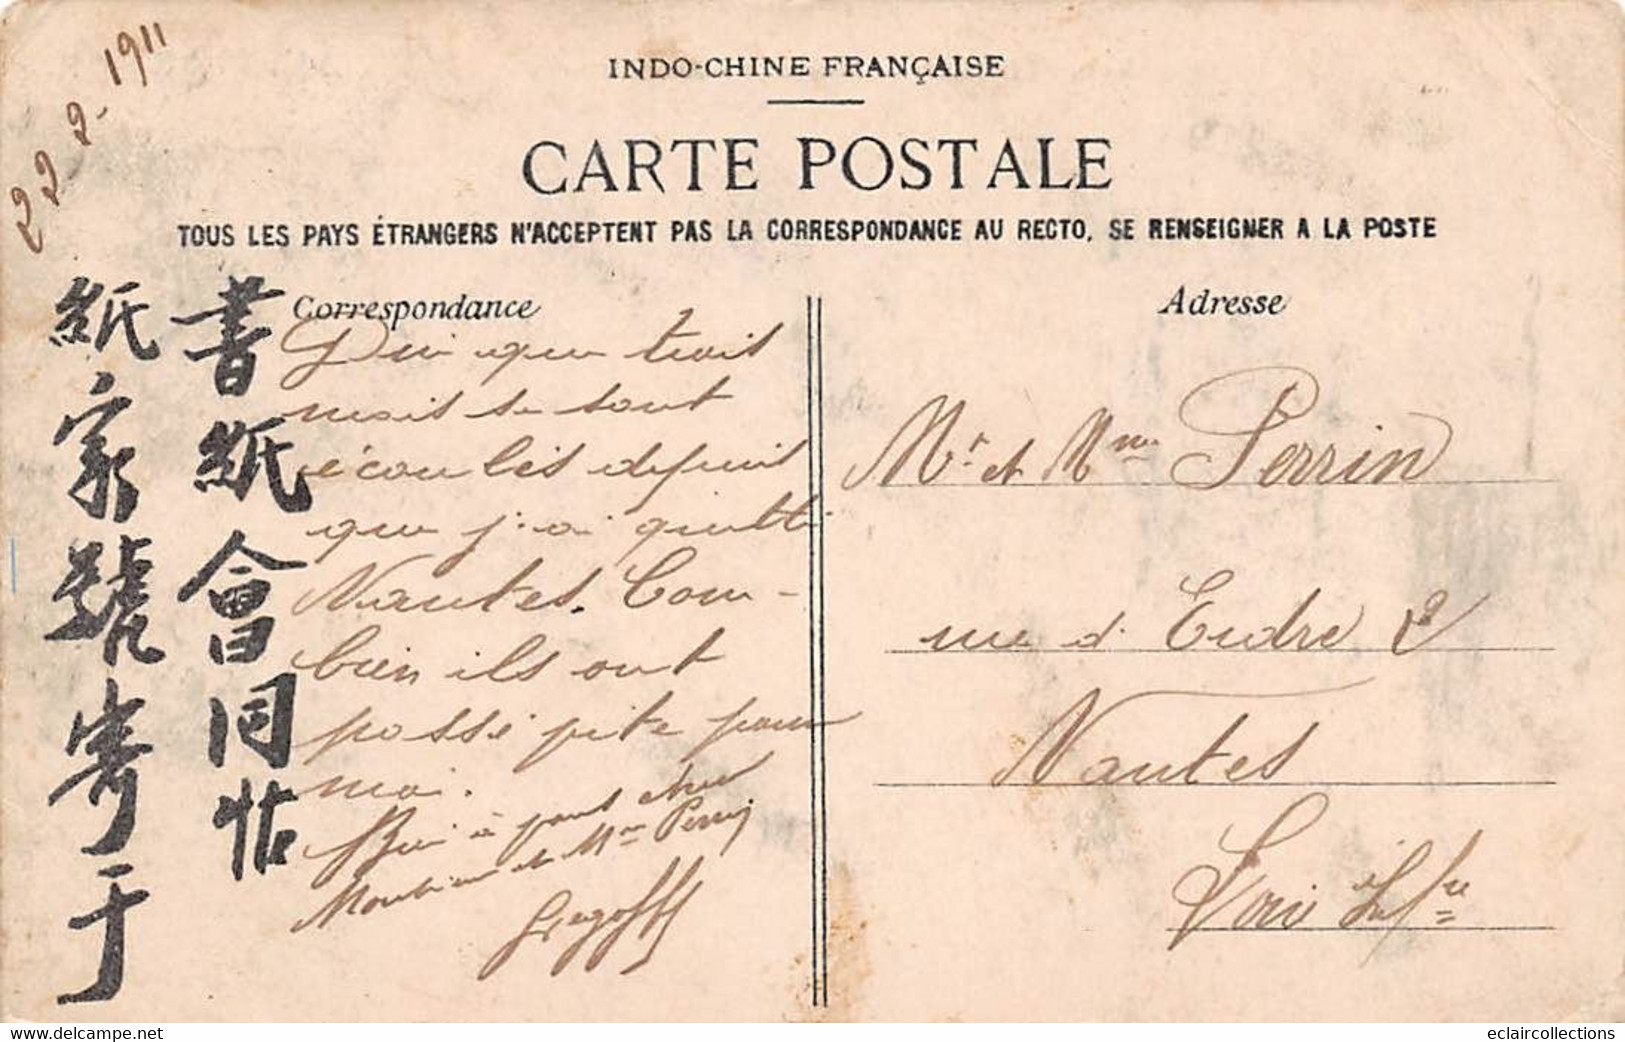 22 2- 1911
INDO-CHINE FRANÇAISE
CARTE POSTALE
TOUS LES PAYS ÉTRANGERS N'ACCEPTENT PAS LA CORRESPONDANCE AU RECTO, SE RENSEIGNER A LA POSTE
書紙會同帖
紙家號寄于
Correspondance
que trois
mois se sont
écoulés depuis
que j'ai quitté
Nantes. Com-
bien ils ont
passé vite pour
moi.
Bien à vous cher
Monsieur et Mme Perrin
Adresse
Mr et Mme Perrin
rue d'Erdre 2
Nantes
Loire Infre
eclaircollections